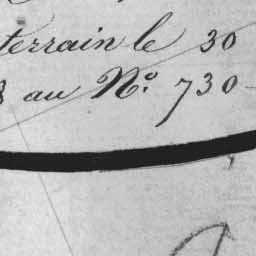 terrain le 30
au Nº. 730